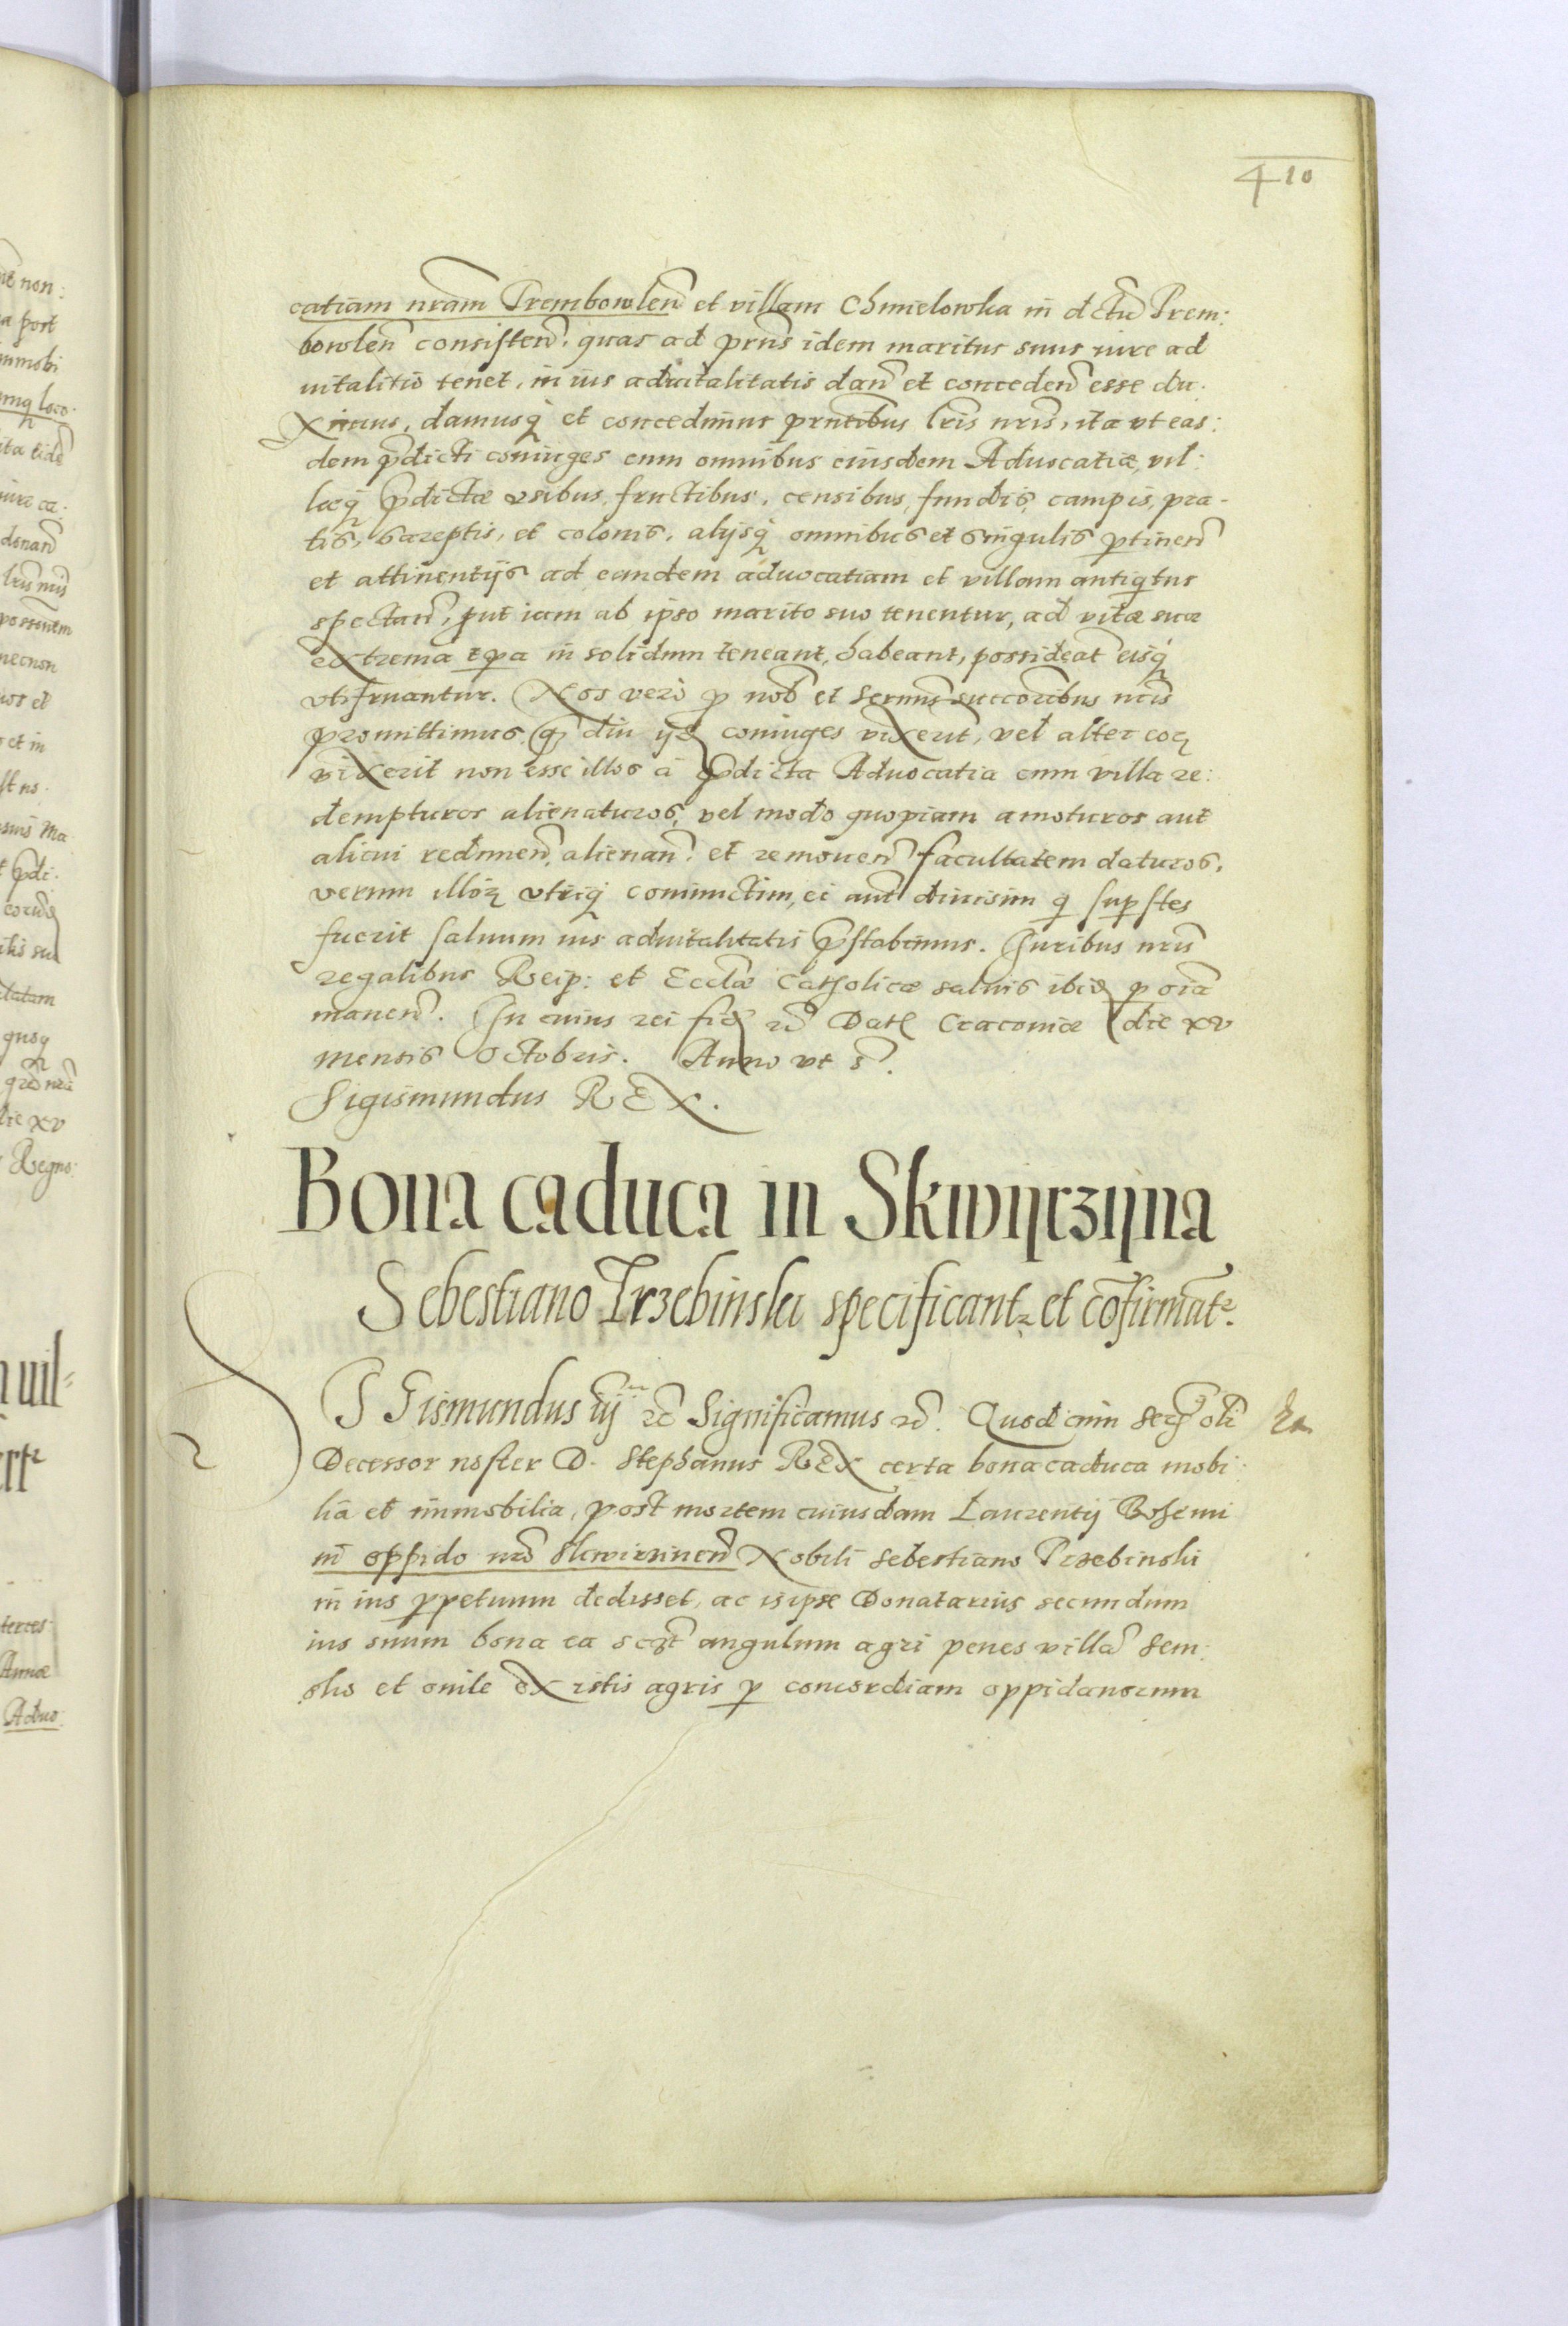 410
catiam nram Trembowlen et villam Chmielowka in dctu Trem:
bowlen consisten, quas ad prns idem maritus suus iure ad
uitalitio tenet, in ius aduitalitatis dan et conceden esse du.
ximus, damusq et concedimus prntibus lris nris, ita vt eas:
dem pdicti coniuges cum omnibus eiusdem Aduocatiæ, vil:
læq pdictæ vsibus, fructibus, censibus, fundis, campis, pra-
tis, et colonis, alijsq omnibus et singulis ptinen
et attinentijs ad eandem aduocatiam et villam antiqtus
spectan, put iam ab ipso marito suo tenentur, ad vitæ suæ
extrema tpa in solidum teneant, habeant, possideat eisq
vtifruantur. Nos vero p nob et Sermis succoribus nris
promittimus, q diu ijd coniuges vixerit, vel alter eor
vixerit non esse illos à pdicta Aduocatia cum villa re:
dempturos alienaturos, vel modo quopiam amoturos aut
alicui redimen, alienan, et remouen facultatem daturos,
verum illor vtriq coniunctim, ei aut diuisim q supstes
fuerit saluum ius aduitalitatis pstabimus. Iuribus nris
regalibus Reip: et Ecclæ Catholicæ saluis ibid p oia
manen. In cuius rei fid rc Dat Cracouiæ die xv
mensis Octobris. Anno vt s.
Sigismundus REX.
Bona caduca in Skwijrzijna
Sebestiano Trzebinski specificantr et cofirmatr.
SIGismundus iij rc Significamus rc. Quod cum Ser oli
Decessor noster D. Stephanus REX certa bona caduca mobi:
lia et immobilia, post mortem cuiusdam Laurentij Bohemi
in oppido nro Skwirzinen Nobili Sebestiano Trzebinski
in ius ppetuum dedisset, ac is ipse Donatarius secundum
ius suum bona ea angulum agri penes villa Sem:
sko et ouile ex istis agris p concordiam oppidanorum